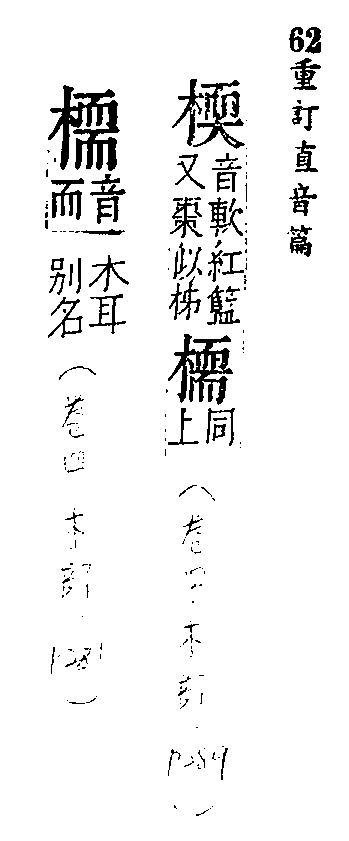 62重訂直音篇
㮕
音軟紅籃
又棗似柹
檽
同
上
（卷四·木部·p284）
檽
音
而
木耳
別名
（卷四 木部·p281）